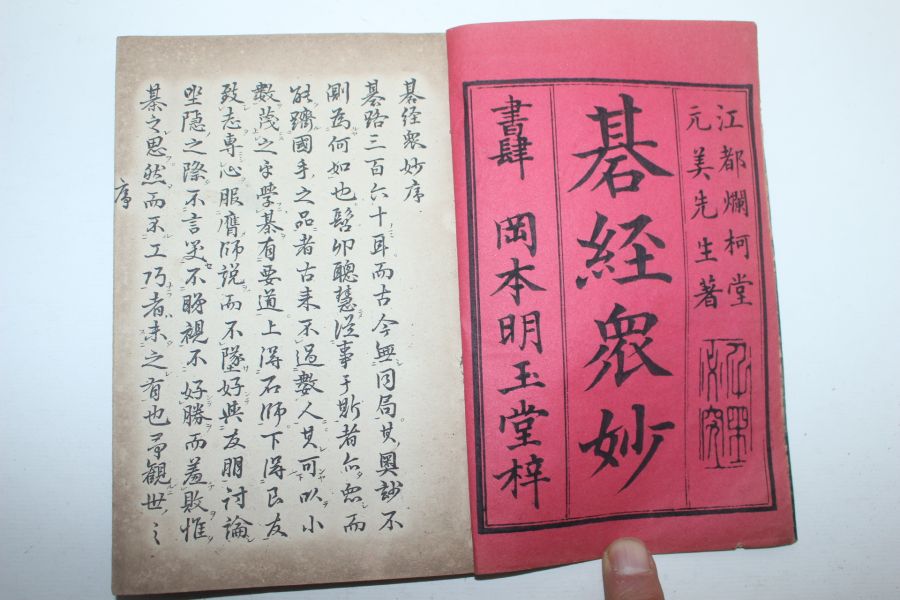 江都爛柯堂
元美先生著
碁経衆妙
書肆 岡本明玉堂梓
碁経衆妙序
碁路三百六十耳而古今無同局其奥妙不
測為何如也髫丱聰慧従事于斯者亦衆而
能躋國手之品者古来不過數人其可以小
數蔑之乎學碁有要道上得石師下得良友
致志専心服膺師説而不墜好與友朋討論
坐隠之際不言笑不睇視不好勝而羞敗惟
碁之思然而不工巧者未之有也予觀世之
序